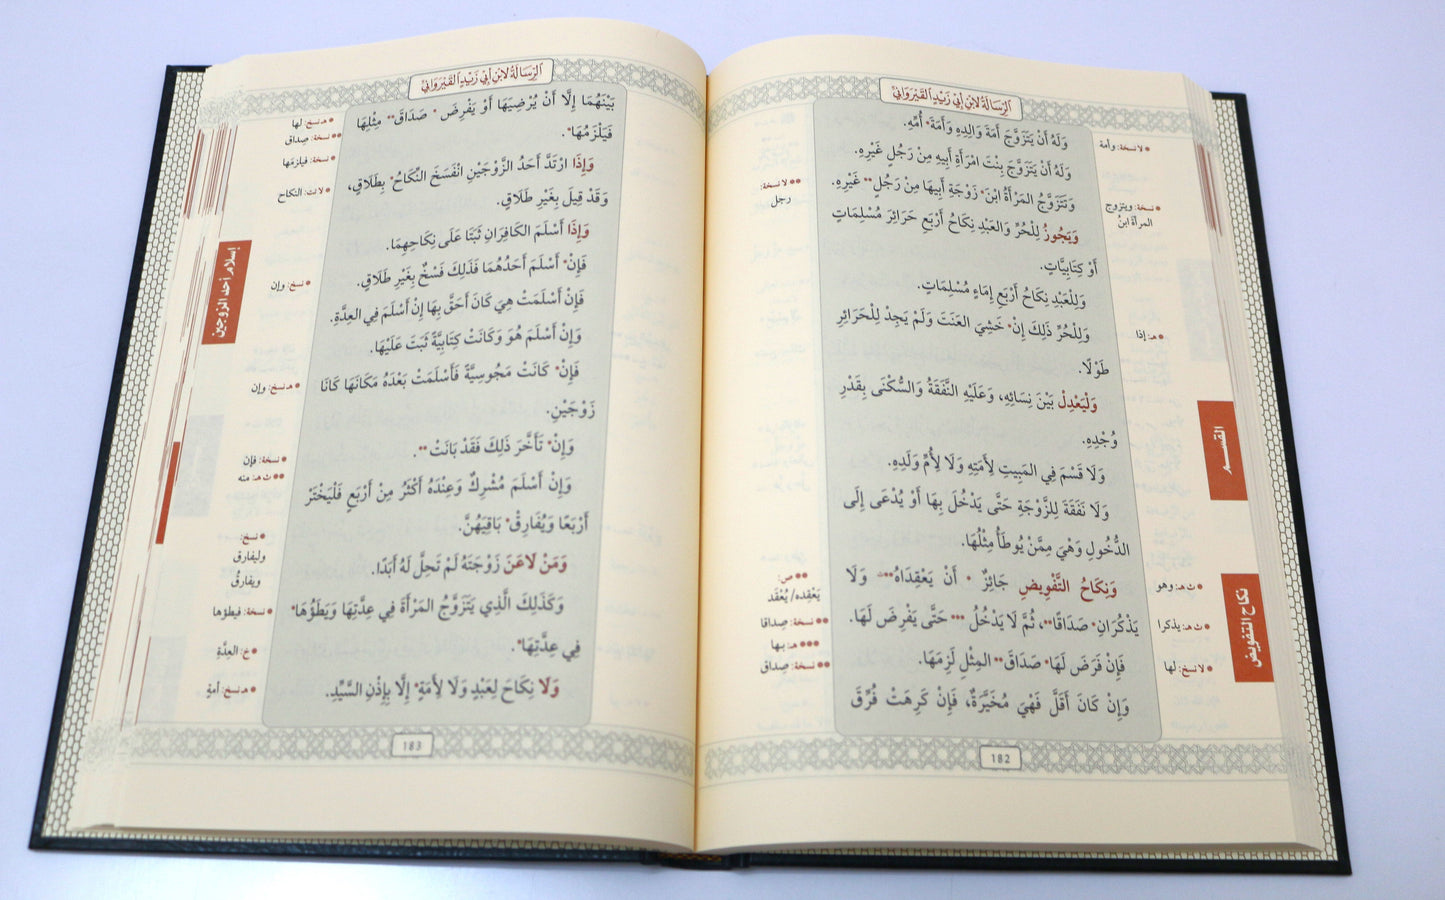 الرِّسَالَةُ لابْنِ أَبِي زَيْدٍ القَيْرَوَانِيِّ
وَلَهُ أَنْ يَتَزَوَّجَ أَمَةَ وَالِدِهِ وَأَمَةَ* أُمِّهِ.
وَلَهُ أَنْ يَتَزَوَّجَ بِنْتَ امْرَأَةِ أَبِيهِ مِنْ رَجُلٍ غَيْرِهِ.
وَتَتَزَوَّجُ المَرْأَةُ ابْنَ* زَوْجَةِ أَبِيهَا مِنْ رَجُلٍ** غَيْرِهِ.
وَيَجُوزُ لِلْحُرِّ وَالعَبْدِ نِكَاحُ أَرْبَعِ حَرَائِرَ مُسْلِمَاتٍ
أَوْ كِتَابِيَّاتٍ.
وَلِلْعَبْدِ نِكَاحُ أَرْبَعِ إِمَاءٍ مُسْلِمَاتٍ.
وَلِلْحُرِّ ذَلِكَ إِنْ* خَشِيَ العَنَتَ وَلَمْ يَجِدْ لِلْحَرَائِرِ
طَوْلًا.
وَلْيَعْدِلْ بَيْنَ نِسَائِهِ، وَعَلَيْهِ النَّفَقَةُ وَالسُّكْنَى بِقَدْرِ
وُجْدِهِ.
وَلَا قَسْمَ فِي المَبِيتِ لِأَمَتِهِ وَلَا لِأُمِّ وَلَدِهِ.
وَلَا نَفَقَةَ لِلزَّوْجَةِ حَتَّى يَدْخُلَ بِهَا أَوْ يُدْعَى إِلَى
الدُّخُولِ وَهْيَ مِمَّنْ يُوطَأُ مِثْلُهَا.
وَنِكَاحُ التَّفْوِيضِ جَائِزٌ * أَنْ يَعْقِدَاهُ** وَلَا
يَذْكُرَانِ* صَدَاقًا**، ثُمَّ لَا يَدْخُلُ *** حَتَّى يَفْرِضَ لَهَا.
فَإِنْ فَرَضَ لَهَا* صَدَاقَ** المِثْلِ لَزِمَهَا.
وَإِنْ كَانَ أَقَلَّ فَهْيَ مُخَيَّرَةٌ، فَإِنْ كَرِهَتْ فُرِّقَ
* لا نسخة: وأمة
* نسخة: ويتزوج
المرأةَ ابنُ
* هـ: إذا
القسم
* ث هـ: وهو
* ث هـ: يذكرا
* لا نسخ: لها
نكاح التفويض
** لا نسخة:
رجل
** ص:
يَعْقِده/ يُعْقَد
** نسخة: صداقا
*** هـ: بها
** نسخة: صِداق
182
الرِّسَالَةُ لابْنِ أَبِي زَيْدٍ القَيْرَوَانِيِّ
بَيْنَهُمَا إِلَّا أَنْ يُرْضِيَهَا أَوْ يَفْرِضَ * صَدَاقَ** مِثْلِهَا
فَيَلْزَمُهَا*.
وَإِذَا ارْتَدَّ أَحَدُ الزَّوْجَيْنِ انْفَسَخَ النِّكَاحُ* بِطَلَاقٍ،
وَقَدْ قِيلَ بِغَيْرِ طَلَاقٍ.
وَإِذَا أَسْلَمَ الكَافِرَانِ ثَبَتَا عَلَى نِكَاحِهِمَا.
فَإِنْ* أَسْلَمَ أَحَدُهُمَا فَذَلِكَ فَسْخٌ بِغَيْرِ طَلَاقٍ.
فَإِنْ أَسْلَمَتْ هِيَ كَانَ أَحَقَّ بِهَا إِنْ أَسْلَمَ فِي العِدَّةِ.
وَإِنْ أَسْلَمَ هُوَ وَكَانَتْ كِتَابِيَّةً ثَبَتَ عَلَيْهَا.
فَإِنْ* كَانَتْ مَجُوسِيَّةً فَأَسْلَمَتْ بَعْدَهُ مَكَانَهَا كَانَا
زَوْجَيْنِ.
وَإِنْ* تَأَخَّرَ ذَلِكَ فَقَدْ بَانَتْ **.
وَإِنْ أَسْلَمَ مُشْرِكٌ وَعِنْدَهُ أَكْثَرُ مِنْ أَرْبَعٍ فَلْيَخْتَرْ
أَرْبَعًا وَيُفَارِقْ* بَاقِيَهُنَّ.
وَمَنْ لَاعَنَ زَوْجَتَهُ لَمْ تَحِلَّ لَهُ أَبَدًا.
وَكَذَلِكَ الَّذِي يَتَزَوَّجُ المَرْأَةَ فِي عِدَّتِهَا وَيَطَؤُهَا*
فِي عِدَّتِهَا*.
وَلَا نِكَاحَ لِعَبْدٍ وَلَا لِأَمَةٍ* إِلَّا بِإِذْنِ السَّيِّدِ.
* هـ نسخ: لها
** نسخة: صِداق
* نسخة: فيلزمَها
* لا نت: النكاح
إسلام أحد الزوجين
* نسخ: وإن
* هـ نسخ: وإن
* نسخة: فإن
** ث هـ: منه
* نسخ:
وليفارق
ويفارقُ
* نسخة: فيطؤها
* خ: العِدَّةِ
* هـ نسخ: أمةٍ
183